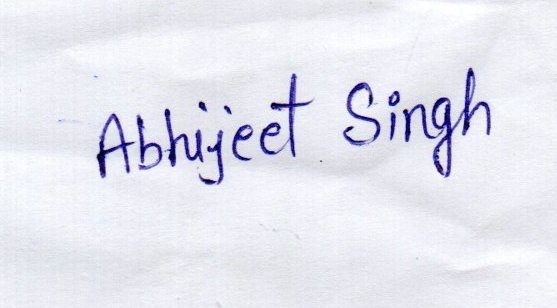 Abhijeet Singh